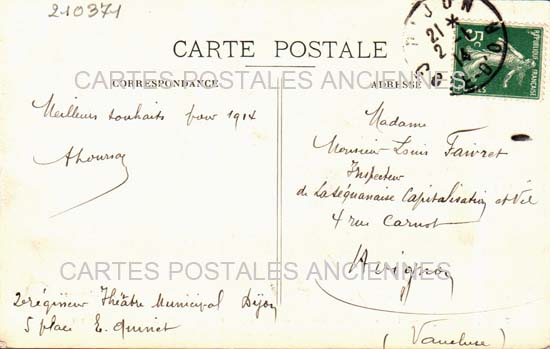 210371
DIJON
21 *
2 - 1
14
COTE-D'OR
REPUBLIQUE FRANÇAISE
5c
CARTE POSTALE
CARTES POSTALES ANCIENNES
CORRESPONDANCE
ADRESSE
Meilleurs souhaits pour 1914
Madame
Monsieur Louis Faivret
Inspecteur
de La Séquanaise Capitalisation et Vie
4 rue Carnot
Avignon
(Vaucluse)
CARTES POSTALES ANCIENNES
2e régisseur Théâtre Municipal Dijon
5 place E. Quinet